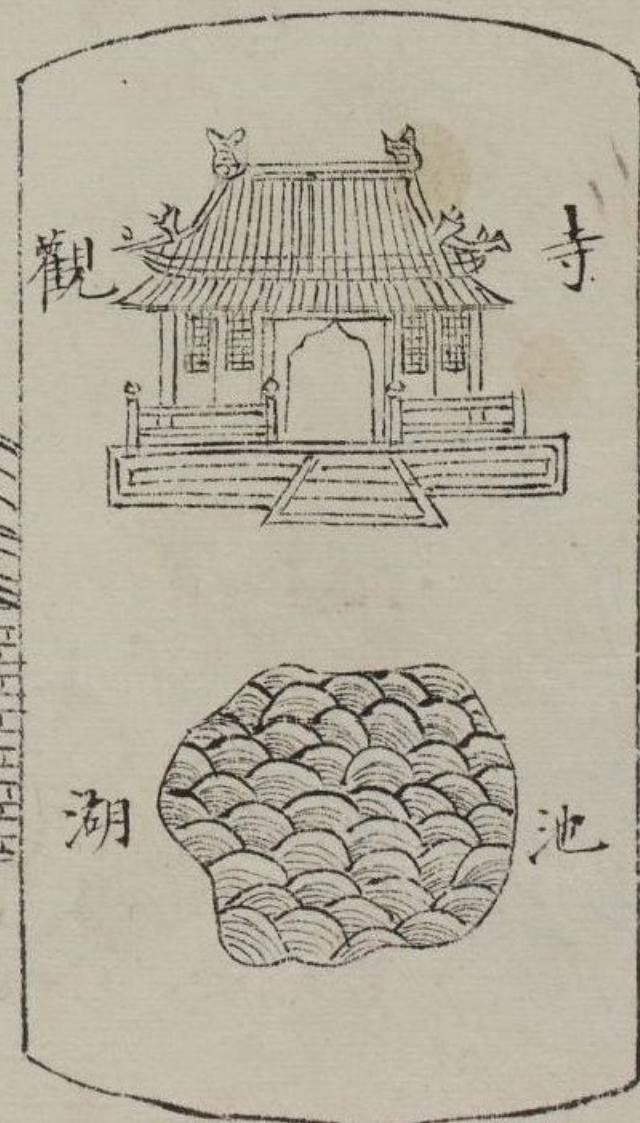 寺觀
池湖